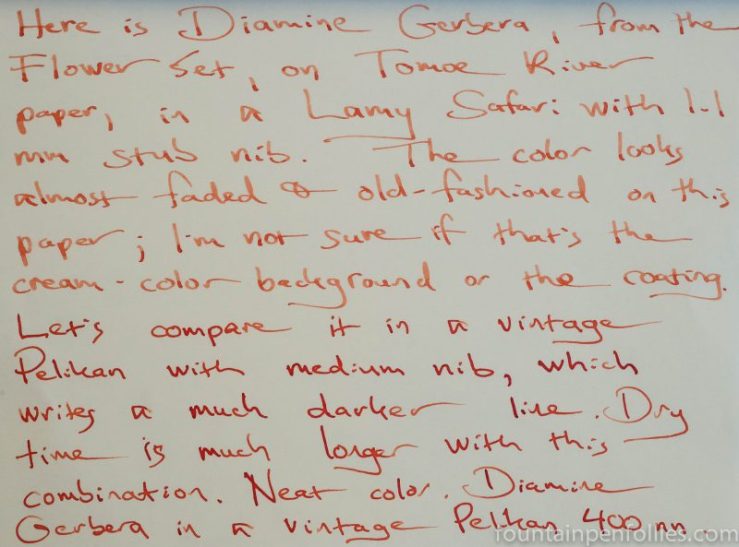 Here is Diamine Gerbera, from the
Flower Set, on Tomoe River
paper, in a Lamy Safari with 1.1
mm stub nib. The color looks
almost faded & old-fashioned on this
paper; I'm not sure if that's the
cream-color background or the coating.
Let's compare it in a vintage
Pelikan with medium nib, which
writes a much darker line. Dry
time is much longer with this
combination. Neat color. Diamine
Gerbera in a vintage Pelikan 400 nn.
fountainpenfollies.com